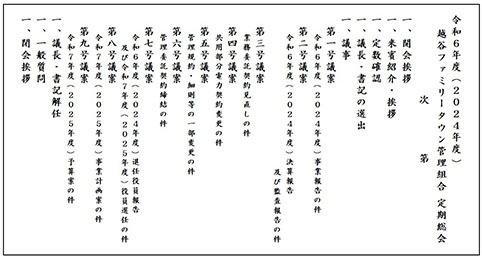 令和６年度（２０２４年度）
越谷ファミリータウン管理組合 定期総会
次 第
一、開会挨拶
一、来賓紹介・挨拶
一、定数確認
一、議長・書記の選出
一、議事
第一号議案
令和６年度（２０２４年度）事業報告の件
第二号議案
令和６年度（２０２４年度）決算報告
及び監査報告の件
第三号議案
業務委託契約見直しの件
第四号議案
共用部分電力契約変更の件
第五号議案
管理規約・細則等の一部変更の件
第六号議案
管理委託契約締結の件
第七号議案
令和６年度（２０２４年度）退任役員報告
及び令和７年度（２０２５年度）役員選任の件
第八号議案
令和７年度（２０２５年度）事業計画案の件
第九号議案
令和７年度（２０２５年度）予算案の件
一、議長・書記解任
一、一般質問
一、閉会挨拶